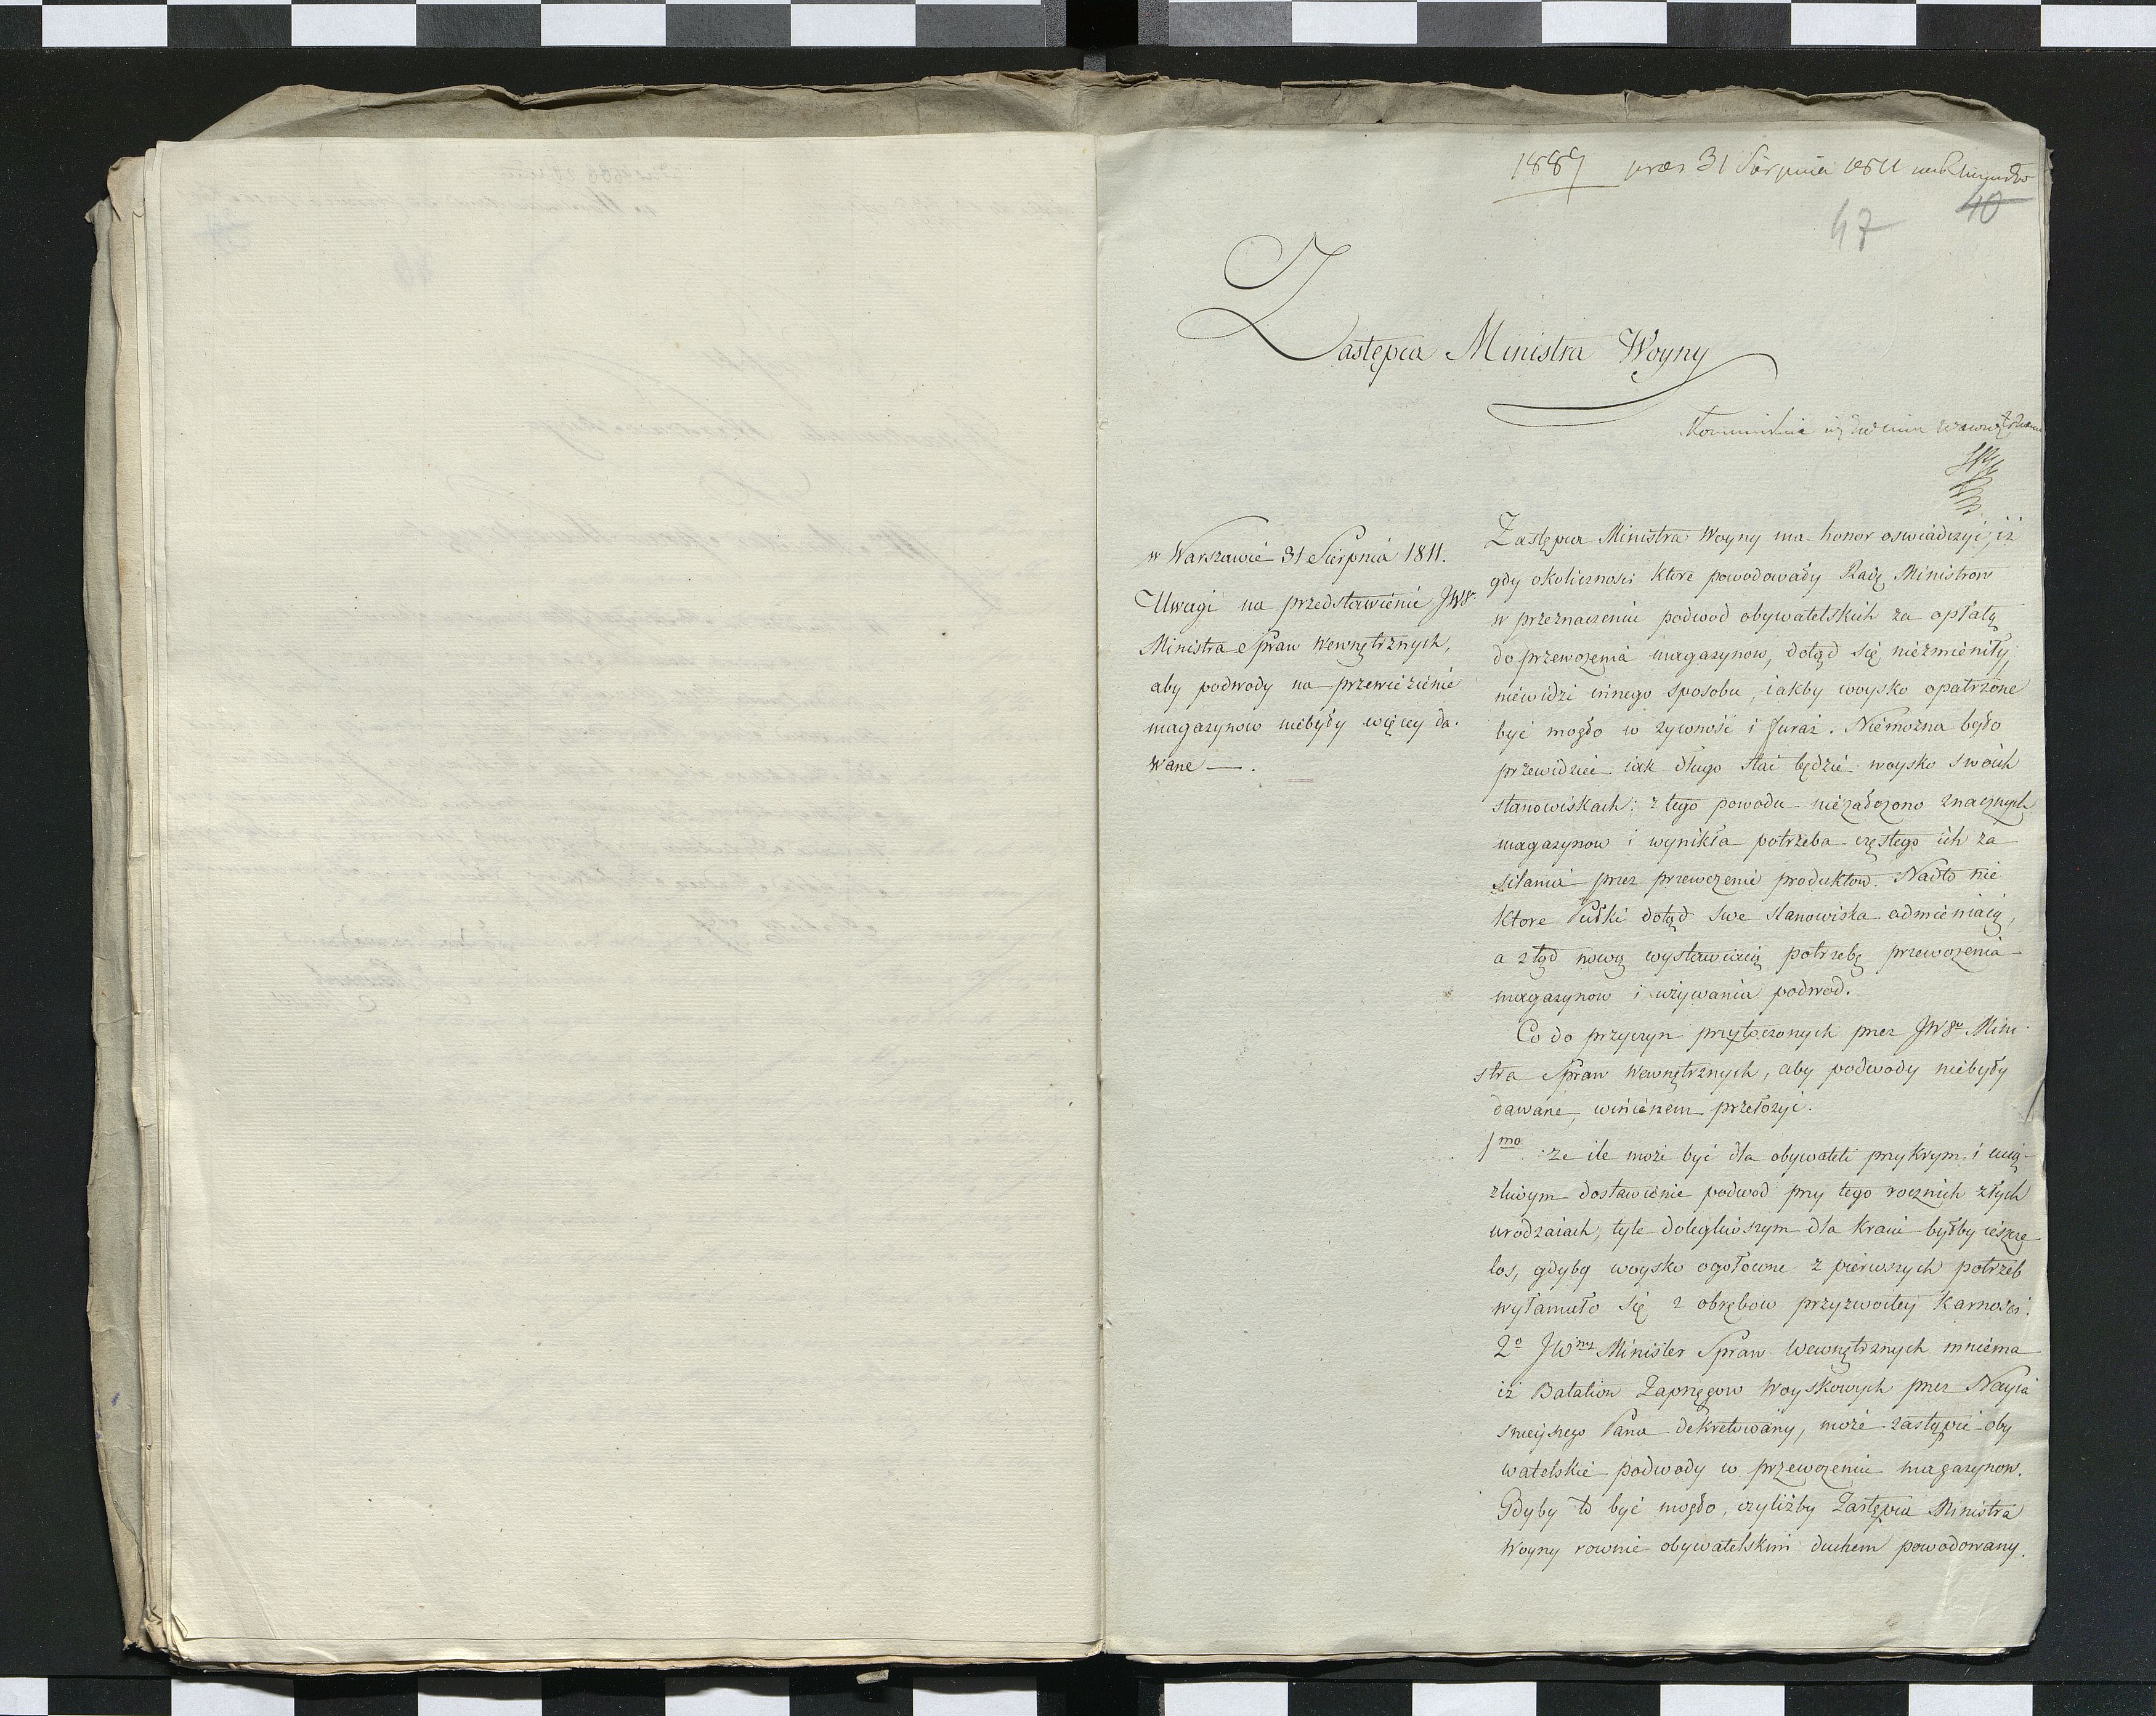 1887 prez 31 Sierpnia 1811
47 40
Zastępca Ministra Woyny
w Warszawie 31 Sierpnia 1811.
Uwagi na przedstawienie JWgo
Ministra Spraw Wewnętrznych,
aby podwody na przewiezienie
magazynow niebyły więcey da-
wane —.
Zastępca Ministra Woyny ma honor oswiadczyć, iż
gdy okolicznosci ktore powodowały Radę Ministrow
w przeznaczeniu podwod obywatelskich za opłatą
do przewożenia magazynow, dotąd się niezmieniły,
niewidzi innego sposobu, iakby woysko opatrzone
być mogło w żywność i furaż. Niemożna było
przewidzieć iak długo stać będzie woysko swoich
stanowiskach; z tego powodu niezałożono znacznych
magazynow i wynikła potrzeba częstego ich za
silania przez przewożenie produktow. Nadto nie
ktore Pułki dotąd swe stanowiska odmieniaią,
a ztąd nową wystawiaią potrzebę przewożenia
magazynow i używania podwod.
Co do przyczyn przytoczonych przez JWgo Mini
stra Spraw Wewnętrznych, aby podwody niebyły
dawane, winienem przełożyć.
1mo że ile może być dla obywateli przykrym i ucią-
żliwym dostawienie podwod przy tego rocznich złych
urodzaiach, tyle dolegliwszym dla kraiu byłby ieszcze
los, gdyby woysko ogołocone z pierwszych potrzeb
wyłamało się z obrębow przyzwoitey karności.
2o JWny Minister Spraw Wewnętrznych mniema
iż Batalion Zaprzęgow Woyskowych przez Nayia
snieyszego Pana dekretowany, może zastąpić oby
watelskie podwody w przewożeniu magazynow.
Gdyby to być mogło, czyliżby Zastępca Ministra
Woyny rownie obywatelskim duchem powodowany.